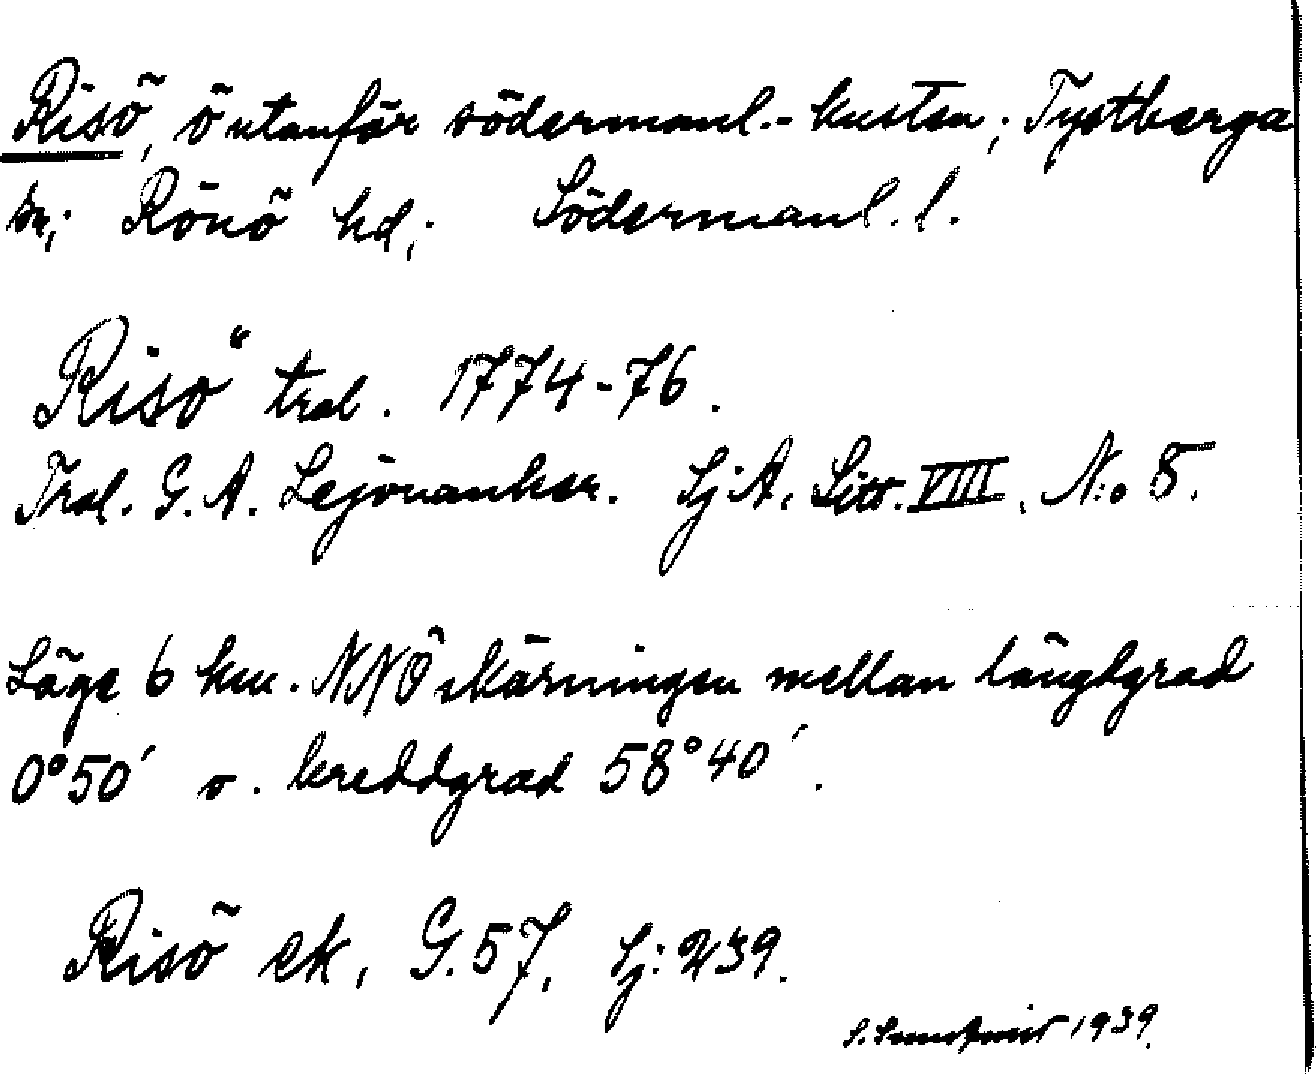 Risö, ö utanför södermanl.-kusten; Tystberga
sn; Rönö hd; Södermanl. l.
Risö" trol. 1774-76.
Trol. G. A. Lejonanker. Sj.A. Litt. VIII. N:o 5.
Läge 6 km. NNÖ skärningen mellan längdgrad
0°50' o. breddgrad 58°40'.
Risö ek, G. 57, Sj: 239.
1939.